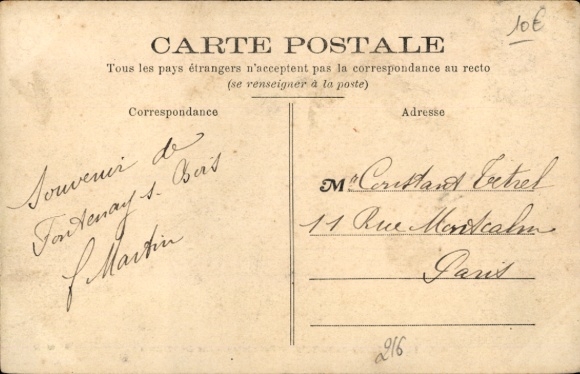 10€
CARTE POSTALE
Tous les pays étrangers n'acceptent pas la correspondance au recto
(se renseigner à la poste)
Correspondance
Souvenir de
Fontenay s. Bois
f Martin
Adresse
Mr Constant Tétrel
11 Rue Montcalm
Paris
216